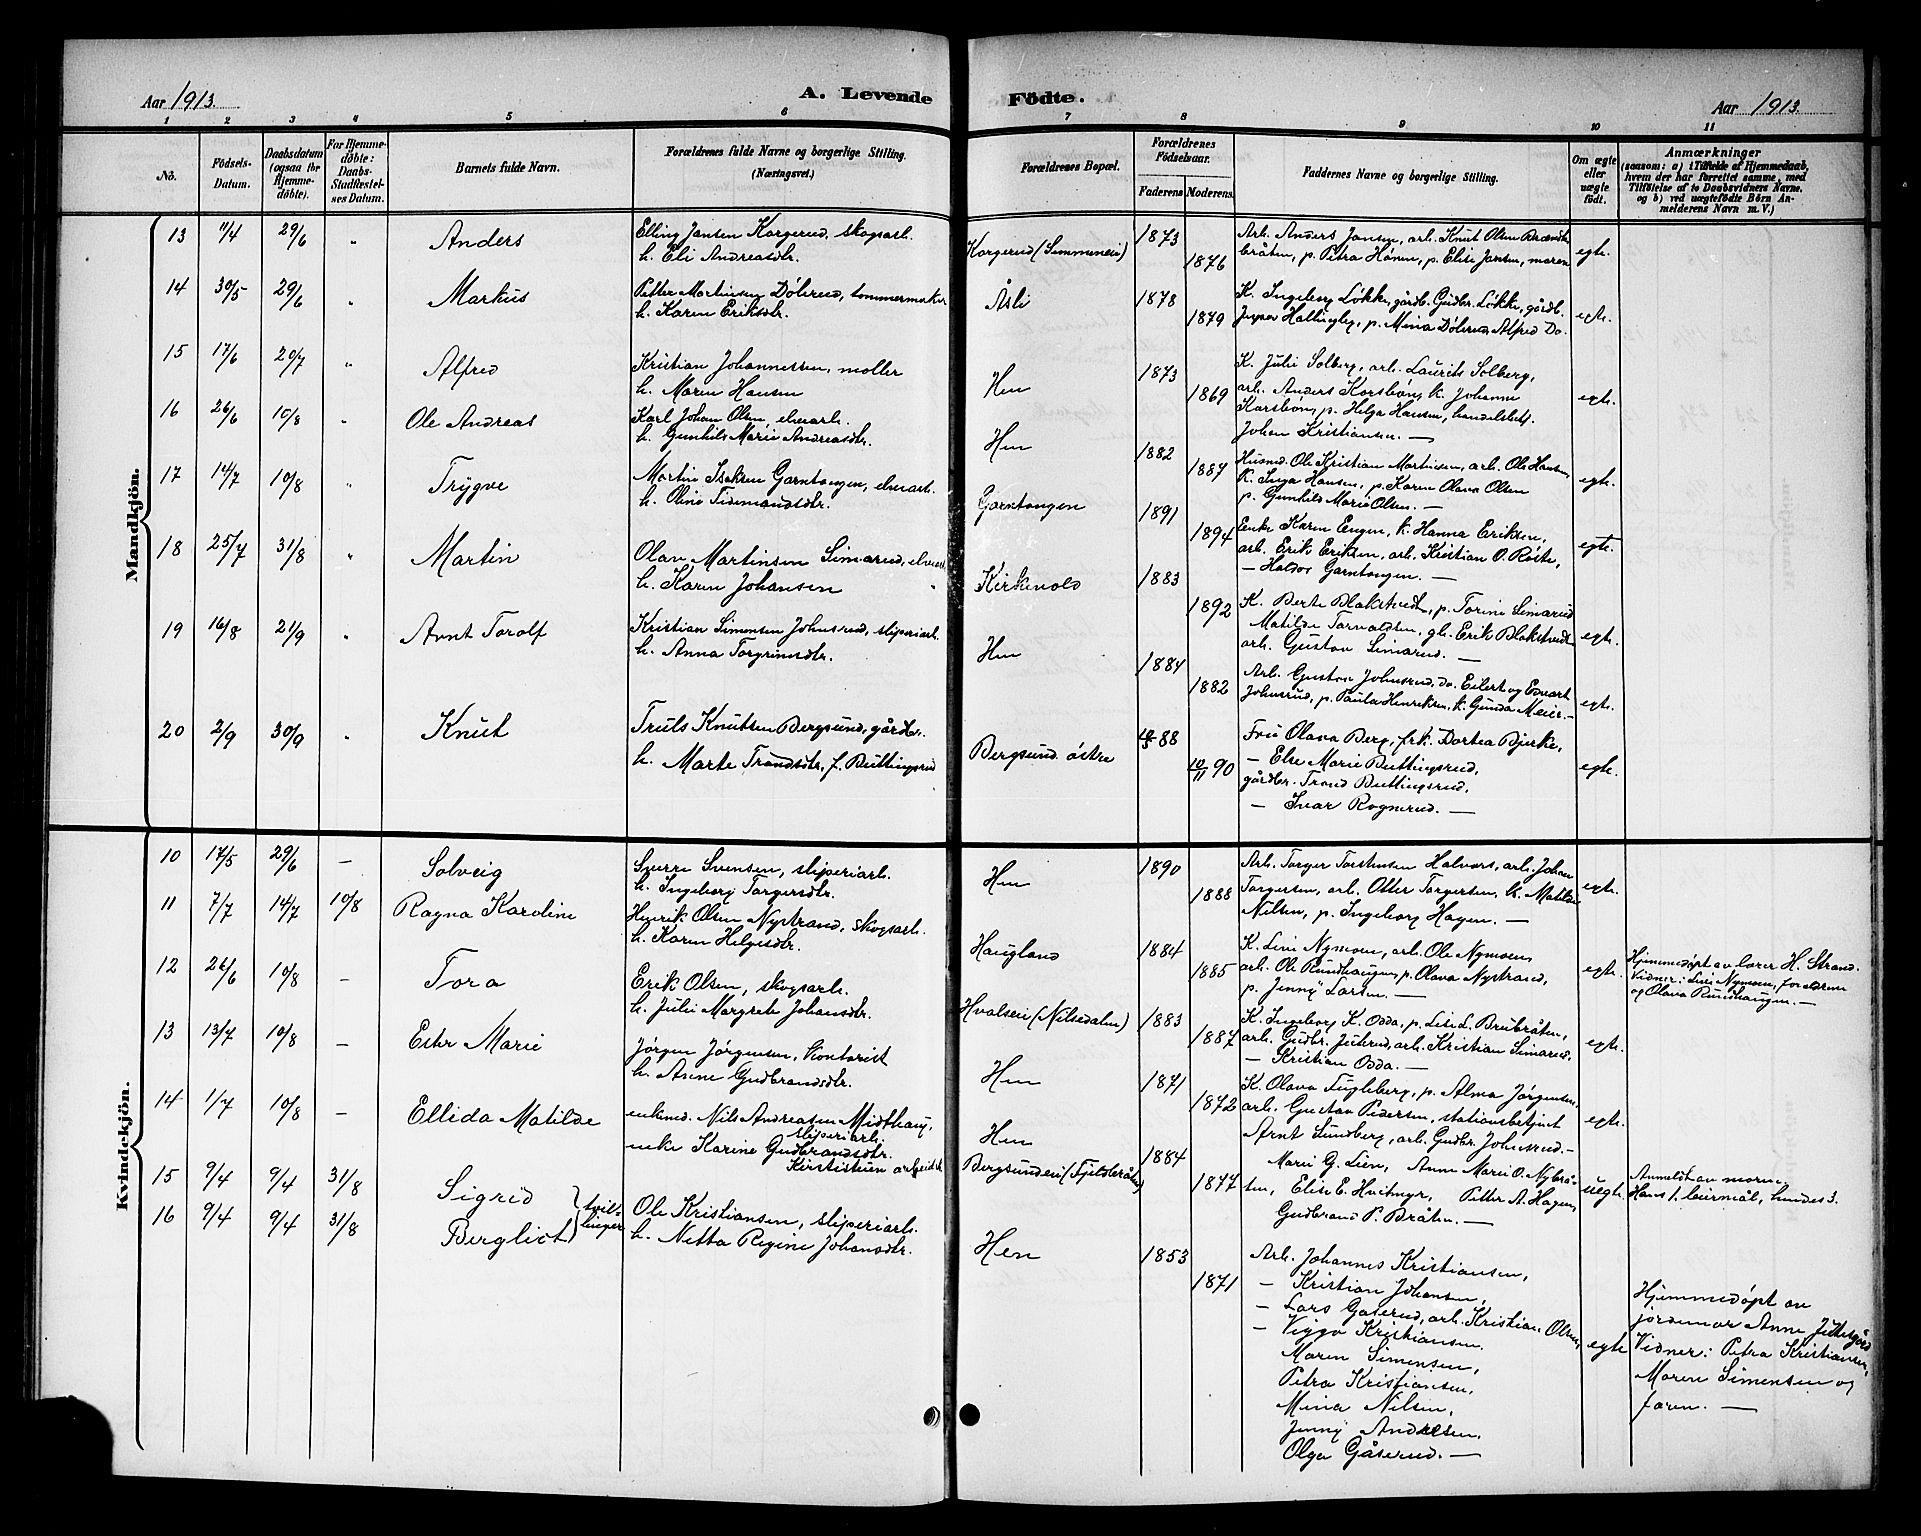 Aar 1913.
A. Levende
Födte.
Aar 1913.
1 2 3 4 5 6 7 8 9 10 11
No.
Födsels-
Datum.
Daabsdatum
(ogsaa for
Hjemme-
døbte).
For Hjemme-
døbte:
Daabs-
Stadfæstel-
ses Datum.
Barnets fulde Navn.
Forældrenes fulde Navne og borgerlige Stilling.
(Næringsvei.)
Forældrenes Bopæl.
Forældrenes
Födselsaar.
Faderens
Moderens.
Faddernes Navne og borgerlige Stilling.
Om ægte
eller
uægte
født.
Anmærkninger
(saasom: a) i Tilfælde af Hjemmedaab,
hvem der har forrettet samme, med
Tilføielse af to Daabsvidners Navne,
og b) ved uægtefødte Børn An-
melderens Navn m. V.)
Mandkjön.
13 11/4 29/6 " Anders
Elling Jansen Korgerud, skogsarb.
h. Eli Andreasdtr.
Korgerud (Simmenei) 1873 1876
Arb. Anders Jansen, arb. Knut Olsen Brænd-
bråten, p. Petra Hønen, p. Elise Jansen, moren
egte.
14 30/5 29/6 " Markus
Petter Martinsen Dölerud, tommermerker
h. Karen Eriksdtr.
Åsli 1878 1879
K. Ingeborg Løkke, gårdb. Gudbr. Løkke, gårdb.
Hallingby, p. Mina Dölerud, Alfred Do.
egte.
15 17/6 20/7 " Alfred
Kristian Johannessen, moller
h. Maren Hansen
Hen 1873 1869
K. Julie Solberg, arb. Laurits Solberg,
arb. Anders Korsbøn, k. Johanne
Korsbøn, p. Helga Hansen, handelsbetj.
Johan Kristiansen. —
egte.
16 26/6 10/8 " Ole Andreas
Karl Johan Olsen, elvearb.
h. Gunhild Marie Andreasdtr.
Hen 1882 1887
Husmd. Ole Kristian Martinsen, arb. Ole Hansen,
K. Inga Hansen, p. Karen Olava Olsen
p. Gunhild Marie Olsen. —
egte.
17 14/7 10/8 " Trygve
Martin Isaksen Garntangen, elvearb.
h. Oline Tidemandsdtr.
Garntangen 1891 1894
Enke Karen Engen, k. Hanna Eriksen,
arb. Erik Eriksen, arb. Kristian O. Röste,
— Haldor Garntangen. —
egte.
18 25/7 31/8 " Martin
Olav Martinsen Simarud, elvearb.
h. Karen Johansen
Kirkevold 1883 1892
K. Berte Blakstvedt, p. Torine Simarud
Matilde Torvaldsen, gb. Erik Blakstvedt
arb. Gustav Simarud. —
egte.
19 16/8 21/9 " Arnt Torolf
Kristian Simensen Johnsrud, sliperiarb.
h. Anna Torgrimsdtr.
Hen 1884 1882
Arb. Gustav Johnsrud, do. Eilert og Edvart
Johnsrud, p. Paula Henriksen, k. Gunda Meier. —
egte.
20 2/9 30/9 " Knut
Truls Knutsen Bergsund, gårdbr.
h. Marte Trondsdtr. f. Buttingsrud
Bergsund østre 88 10/11 90
Fru Olava Berg, frk. Dortea Bjerke,
— Else Marie Buttingsrud,
gårdbr. Trond Buttingsrud,
— Ivar Rognerud. —
egte.
Kvindekjön.
10 17/5 29/6 — Solveig
Sverre Svensen, sliperiarb.
h. Ingeborg Torgersdtr.
Hen 1890 1888
Arb. Torger Torstensen Halvors, arb. Johan
Torgersen, arb. Otter Torgersen, k. Matilde
Nilsen, p. Ingeborg Hagen. —
egte.
11 7/7 14/7 10/8 Ragna Karoline
Henrik Olsen Nystrand, skogsarb.
h. Karen Helgesdtr.
Haugland 1884 1885
K. Lini Nymoen, arb. Ole Nymoen,
arb. Ole Rundhaugen, p. Olava Nystrand,
p. Jenny Larsen. —
egte.
Hjemmedøpt av lærer H. Strand.
Vidner: Lini Nymoen, foreldrene
og Olava Rundhaugen. —
12 26/6 10/8 — Tora
Erik Olsen, skogsarb.
h. Julie Margrete Johansdtr.
Hvalseie (Nilsedalen) 1883 1887
K. Ingeborg K. Odda, p. Lise L. Brubråten,
arb. Gudbr. Juterud, arb. Kristian Simarud.
— Kristian Odda. —
egte.
13 13/7 10/8 — Ester Marie
Jörgen Jörgensen, kontorist
h. Anne Gudbrandsdtr.
Hen 1871 1872
K. Olava Fugleberg, p. Alma Jörgensen,
arb. Gustav Pedersen, stationsbetjent
Arnt Sundberg, arb. Gudbr. Johnsrud. —
egte.
14 1/7 10/8 — Ellida Matilde
enkmd. Nils Andreasen Midthaug,
sliperiarb.
enke Karine Gudbrandsdtr.
Kirstistuen arbeidsk
Hen
Bergsundeie (Fjeldbråten) 1884 1877
Marie G. Lien, Anne Marie O. Nybrå-
ten, Elise E. Hvitmyr, Petter A. Hagen,
Gudbrand P. Bråten. —
uegte.
Anmeldt av moren.
Hans 1. leiermål, hendes 3.
15 9/4 9/4 31/8 Sigrid
16 9/4 9/4 31/8 Bergliot
tvil-
linger
Ole Kristiansen, sliperiarb.
h. Netta Regine Johansdtr.
Hen 1853 1871
Arb. Johannes Kristiansen,
— Kristian Johansen,
— Lars Gåserud, arb. Kristian Olsen,
— Viggo Kristiansen.
Maren Simensen,
Petra Kristiansen,
Mina Nilsen,
Jenny Andersen,
Olga Gåserud. —
egte
Hjemmedøpt av
jordemor Anne
Vidner: Petra Kristiansen,
Maren Simensen og
faren. —